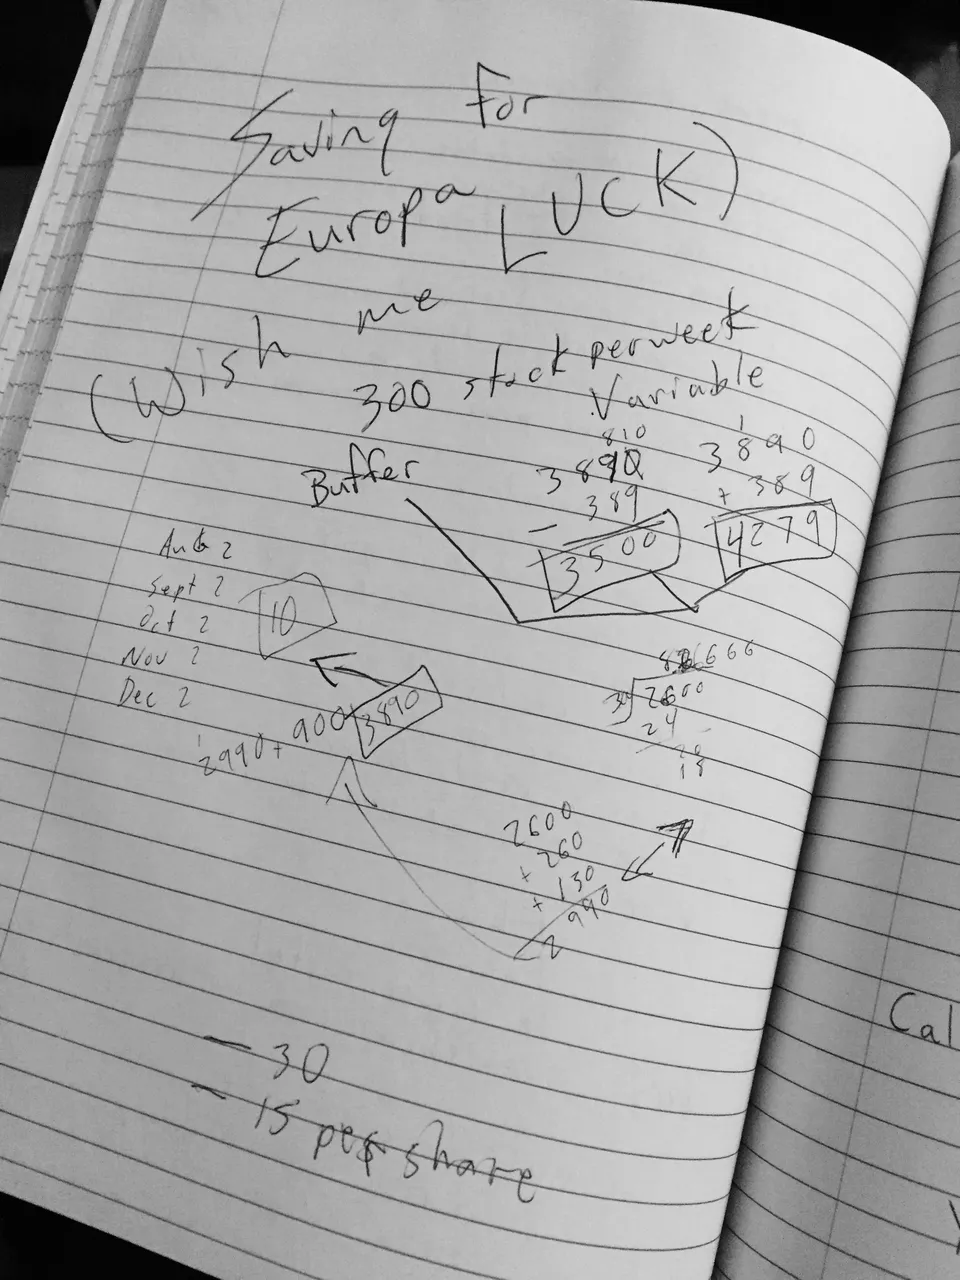 Saving for
Europa
(Wish me LUCK)
300 stock per week
Variable
Buffer
8 10
3890
- 389
3500
1
3890
+ 389
4279
Aug 2
Sept 2
Oct 2
Nov 2
Dec 2
10
1
2990 + 900
3890
666
30
2600
24
20
18
2600
+ 260
+ 130
2990
- 30
- 15 per share
Cal